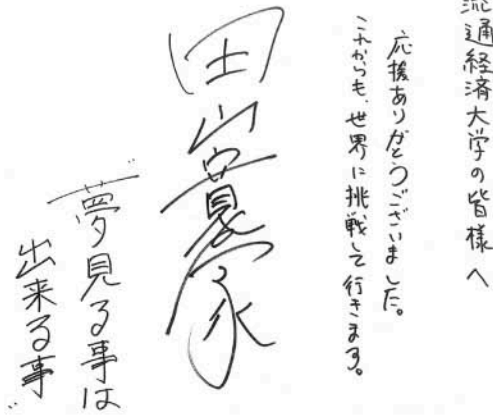 流通経済大学の皆様へ
応援ありがとうございました。
これからも、世界に挑戦して行きます。
田山寛豪
"夢見る事は
出来る事"